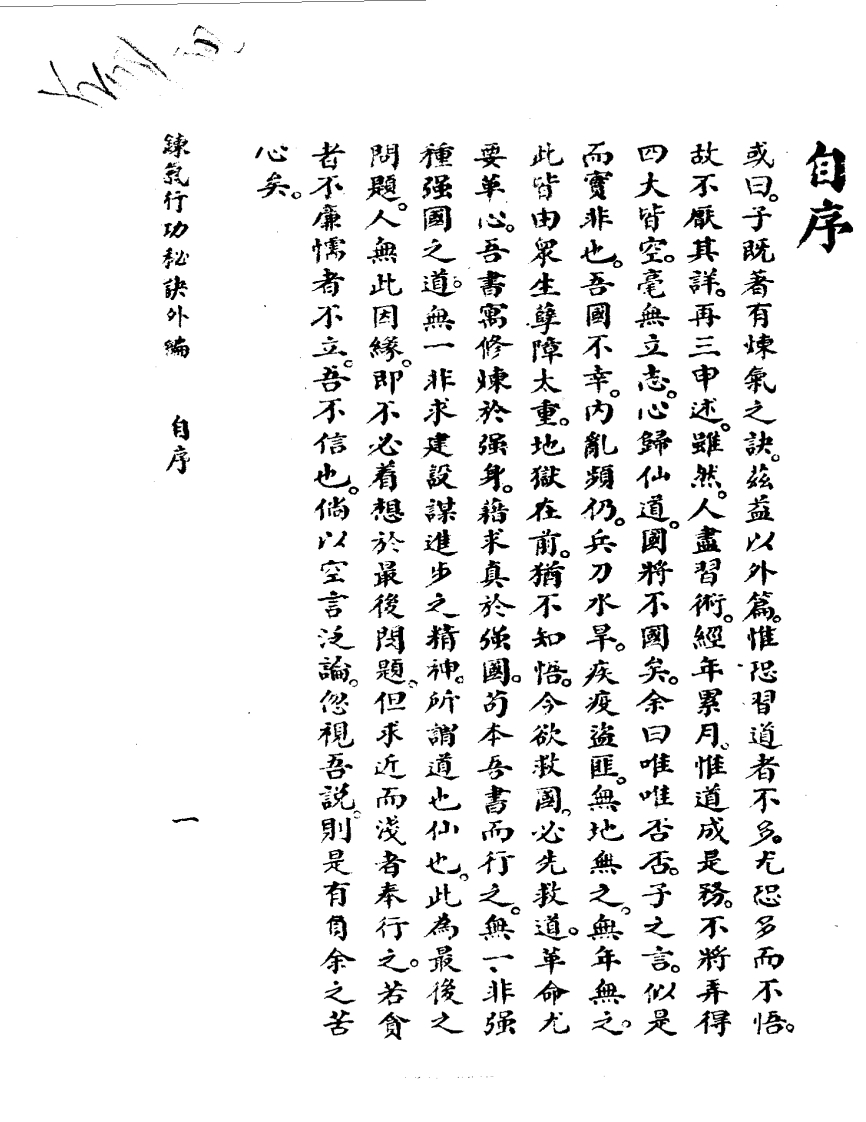 自序
或曰。子既著有煉氣之訣。茲益以外篇。惟恐習道者不多。尤恐多而不悟。
故不厭其詳。再三申述。雖然。人盡習術。經年累月。惟道成是務。不將弄得
四大皆空。毫無立志。心歸仙道。國將不國矣。余曰唯唯否否。子之言。似是
而實非也。吾國不幸。內亂頻仍。兵刀水旱。疾疫盜匪。無地無之。無年無之。
此皆由眾生孽障太重。地獄在前。猶不知悟。今欲救國。必先救道。革命尤
要革心。吾書寓修煉於强身。藉求真於强國。苟本吾書而行之。無一非强
種强國之道。無一非求建設謀進步之精神。所謂道也仙也。此為最後之
問題。人無此因緣。即不必着想於最後問題。但求近而淺者奉行之。若貪
者不廉懦者不立。吾不信也。倘以空言泛論。忽視吾説。則是有負余之苦
心矣。
鍊氣行功秘訣外編 自序 一